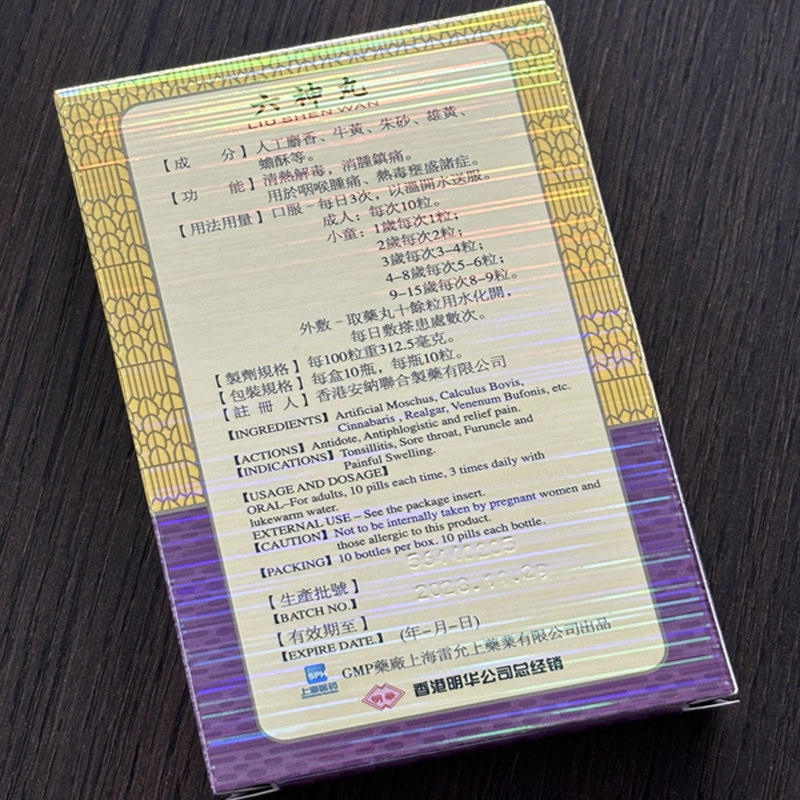 六神丸
LIU SHEN WAN
【成　分】人工麝香、牛黃、朱砂、雄黃、
蟾酥等。
【功　能】清熱解毒，消腫鎮痛。
用於咽喉腫痛、熱毒壅盛諸症。
【用法用量】口服－每日3次，以溫開水送服。
成人：每次10粒。
小童：1歲每次1粒；
2歲每次2粒；
3歲每次3–4粒；
4–8歲每次5–6粒；
9–15歲每次8–9粒。
外敷－取藥丸十餘粒用水化開，
每日敷搽患處數次。
【製劑規格】每100粒重312.5毫克。
【包裝規格】每盒10瓶，每瓶10粒。
【註 冊 人】香港安納聯合製藥有限公司
【INGREDIENTS】Artificial Moschus, Calculus Bovis,
Cinnabaris , Realgar, Venenum Bufonis, etc.
【ACTIONS】Antidote, Antiphlogistic and relief pain.
【INDICATIONS】Tonsillitis, Sore throat, Furuncle and
Painful Swelling.
【USAGE AND DOSAGE】
ORAL–For adults, 10 pills each time, 3 times daily with
lukewarm water.
EXTERNAL USE – See the package insert.
【CAUTION】Not to be internally taken by pregnant women and
those allergic to this product.
【PACKING】10 bottles per box. 10 pills each bottle.
【生產批號】
【BATCH NO.】
【有效期至】
【EXPIRE DATE.】 (年–月–日)
SPH
上海医药
GMP藥廠上海雷允上藥業有限公司出品
明華
香港明华公司总经销